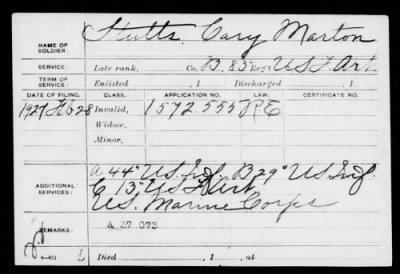 NAME OF SOLDIER: Stutts, Cary Marton
SERVICE: Late rank, Co. B. 83" Reg't US F Art.
TERM OF SERVICE: Enlisted , 1 Discharged , 1
DATE OF FILING. CLASS. APPLICATION NO. LAW. CERTIFICATE NO.
1927 Feb 28 Invalid, 1572 555 RE
Widow,
Minor,
ADDITIONAL SERVICES: A 44" U.S. Inf. B 29" US Inf
C 13" US F Art
U.S. Marine Corps
REMARKS: A 37 073
Died , 1 , at